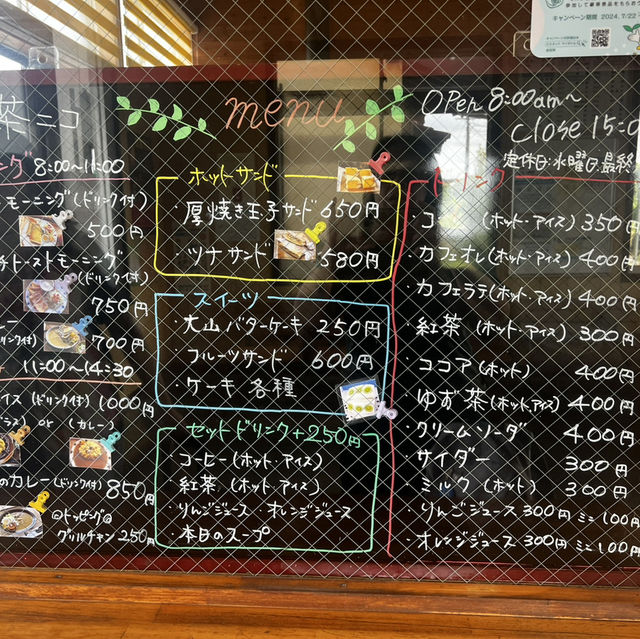 参加して豪華景品をもらお
キャンペーン期間 2024, 7/22
茶ニコ
menu
OPen 8:00am~
close 15:0
定休日:水曜日.最終
ング 8:00~11:00
モーニング(ドリンク付)
500円
トーストモーニング
(ドリンク付)
750円
レー
リンク付) 700円
11:00~14:30
イス (ドリンク付) 1000円
ラス) or (カレー)
のカレー(ドリンク付) 850円
◎トッピング◎
グリルチキン 250円
ホットサンド
・厚焼き玉子サンド 650円
・ツナサンド 580円
スイーツ
・大山バターケーキ 250円
・フルーツサンド 600円
・ケーキ 各種
セットドリンク+250円
コーヒー(ホット・アイス)
紅茶 (ホット・アイス)
りんごジュース・オレンジジュース
・本日のスープ
ドリンク
・コーヒー (ホット・アイス) 350円
・カフェオレ(ホット・アイス) 400円
・カフェラテ(ホット・アイス) 400円
・紅茶 (ホット・アイス) 300円
・ココア (ホット) 400円
・ゆず茶(ホット.アイス) 400円
・クリームソーダ 400円
・サイダー 300円
・ミルク (ホット) 300円
・りんごジュース 300円 ミニ 100円
・オレンジジュース 300円 ミニ 100円